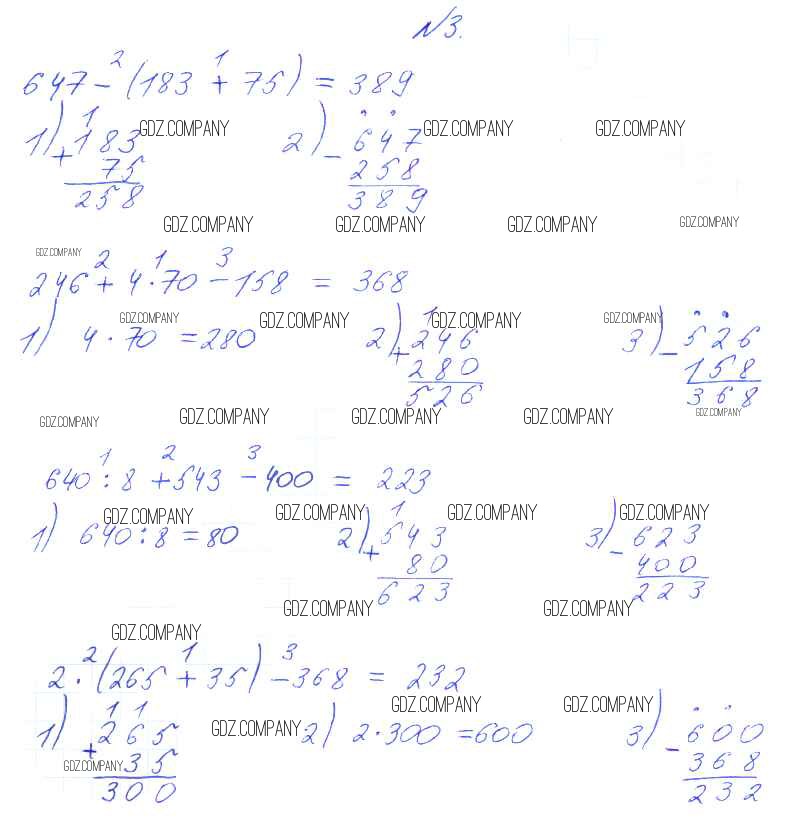 №3.
2 1
647 - (183 + 75) = 389
1) 1 2) . .
+ 183 GDZ.COMPANY - 647 GDZ.COMPANY GDZ.COMPANY
75 258
258 389
GDZ.COMPANY GDZ.COMPANY GDZ.COMPANY GDZ.COMPANY
GDZ.COMPANY 2 1 3
246 + 4·70 - 158 = 368
GDZ.COMPANY GDZ.COMPANY 1 GDZ.COMPANY GDZ.COMPANY . .
1) 4·70 = 280 2) + 246 3) - 526
280 158
526 368
GDZ.COMPANY GDZ.COMPANY GDZ.COMPANY GDZ.COMPANY GDZ.COMPANY
1 2 3
640 : 8 + 543 - 400 = 223
GDZ.COMPANY GDZ.COMPANY 1 GDZ.COMPANY GDZ.COMPANY
1) 640 : 8 = 80 2) + 543 3) - 623
80 400
623 223
GDZ.COMPANY GDZ.COMPANY
GDZ.COMPANY
2 1 3
2·(265 + 35) - 368 = 232
1 1 GDZ.COMPANY GDZ.COMPANY . .
1) + 265 GDZ.COMPANY 2) 2·300 = 600 3) - 600
GDZ.COMPANY 35 368
300 232